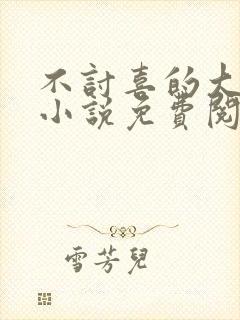 不討喜的大
小說免費閱
雪芳兒